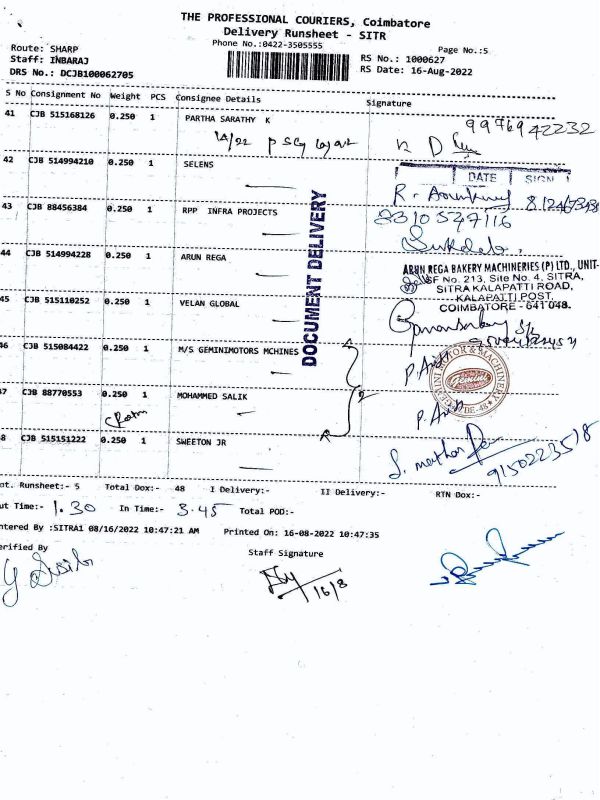 THE PROFESSIONAL COURIERS, Coimbatore
Delivery Runsheet - SITR
Phone No.:0422-3505555
Page No.:5
Route: SHARP
Staff: INBARAJ
DRS No.: DCJB100062705
RS No.: 1000627
RS Date: 16-Aug-2022
S No Consignment No Weight PCS Consignee Details Signature
41 CJB 515168126 0.250 1 PARTHA SARATHY K
9976942232
42 CJB 514994210 0.250 1 SELENS
DATE SIGN
43 CJB 88456384 0.250 1 RPP INFRA PROJECTS
DOCUMENT DELIVERY
44 CJB 514994228 0.250 1 ARUN REGA
ARUN REGA BAKERY MACHINERIES (P) LTD., UNIT-
SF No. 213, Site No. 4, SITRA,
SITRA KALAPATTI ROAD,
KALAPATTI POST,
COIMBATORE - 641 048.
45 CJB 515110252 0.250 1 VELAN GLOBAL
46 CJB 515084422 0.250 1 M/S GEMINIMOTORS MCHINES
GEMINI MOTOR & MACHINERY
Gemini
47 CJB 88770553 0.250 1 MOHAMMED SALIK
48 CJB 515151222 0.250 1 SWEETON JR
9150223518
nt. Runsheet:- 5 Total Dox:- 48 I Delivery:- II Delivery:- RTN Dox:-
ut Time:- 1.30 In Time:- 3.45 Total POD:-
ntered By :SITRA1 08/16/2022 10:47:21 AM Printed On: 16-08-2022 10:47:35
erified By
Staff Signature
16/8